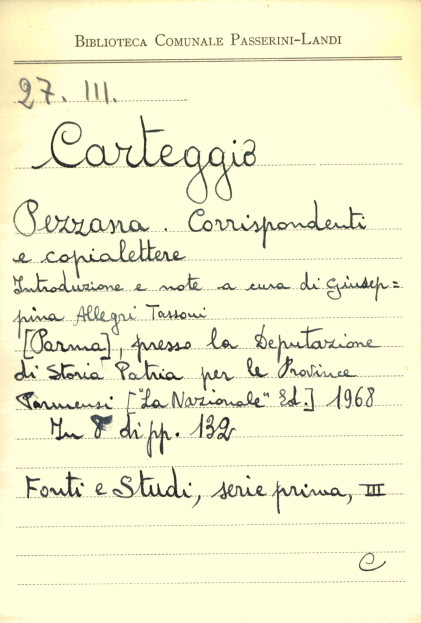 BIBLIOTECA COMUNALE PASSERINI-LANDI
27. III.
Carteggio
Pezzana. Corrispondenti
e copialettere
Introduzione e note a cura di Giusep=
pina Allegri Tassoni
[Parma], presso la Deputazione
di Storia Patria per le Province
Parmensi ["La Nazionale" Ed.] 1968
In 8° di pp. 132
Fonti e Studi, serie prima, III
C